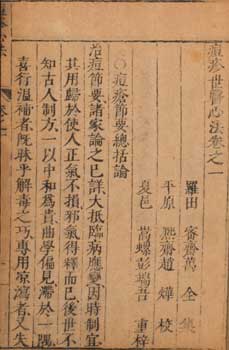 痘疹世醫心法卷之一
羅田 密齋萬 全 集
平原 熙齋趙 燁 校
夏邑 嵩螺彭端吾 重梓
○痘瘡節要總括論
治痘節要諸家論之已詳大抵臨病應變因時制宜
其用歸於使人正氣不損邪氣得釋而已後世不
知古人制方一以中和為貴曲學偏見滯於一隅
喜行溫補者既昧乎解毒之巧專用涼瀉者又失